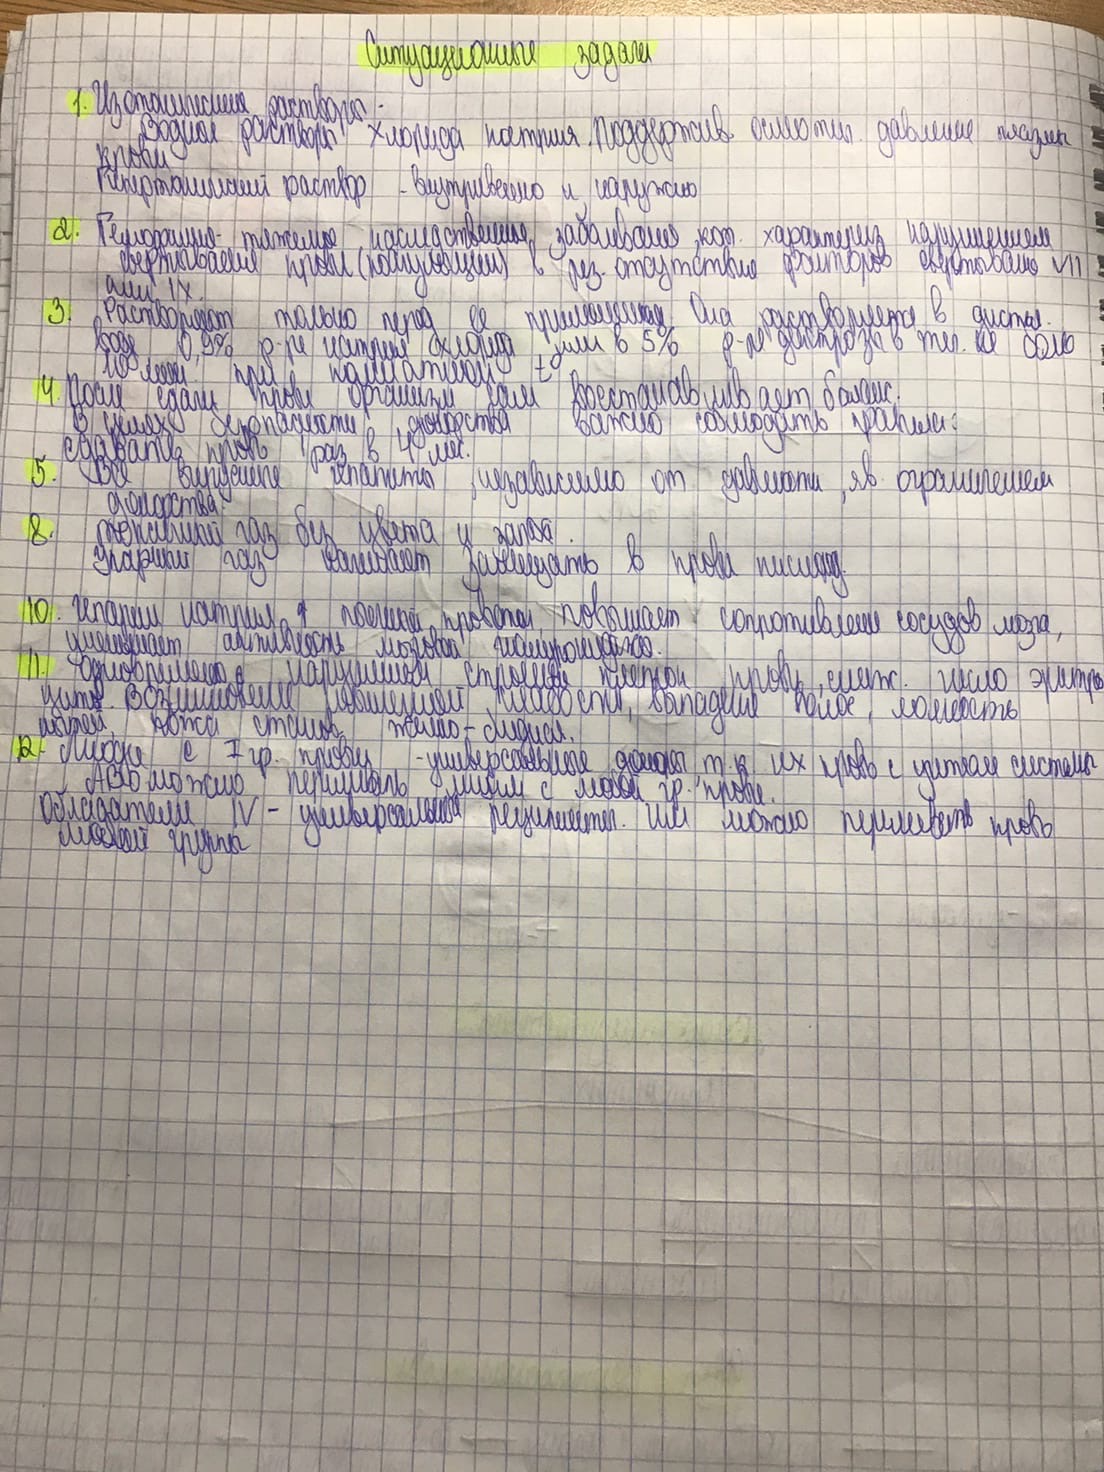 Ситуационные задачи
1. Изотонические растворы -
Водные растворы хлорида натрия. Поддержив. осмотич. давление плазмы
крови
Гипертонический раствор - внутривенно и наружно
2. Гемофилия - тяжелые наследственные забалевания, кот. характериз. нарушением
свертывания крови (коагуляцией) в рез. отсутствие факторов свертывания VII
или IX.
3. Растворяют только перед ее применением. Она растворяется в дистил.
воде 0,9% р-ре натрия хлорида или в 5% р-ре декстрозы в теч. не более
10 мин при комнатной t°
4. После сдачи крови организм сам восстанавливает баланс.
В целях безопасности донорства важно соблюдать правила:
сдавать кровь 1 раз в 4 мес.
5. Все вирусные гепатиты, независимо от давности, яв. ограничением
донорства.
8. токсичный газ без цвета и запаха.
Угарный газ начинает замещать в крови кислород.
10. натрия, повышает сопротивление сосудов мозга,
уменьшает активность мозговой
11. Одновременно с нарушением строения клеток крови, сниж. число эритро
цитов. Возникновение повышенной выпадение волос, ломкость
ногтей, кожа стала желто-бледная.
12. Люди с I гр. крови - универсальные доноры т.к их кровь с учетом системы
АВО можно переливать лицам с любой гр. крови.
Обладатели IV - универсальные реципиенты. Им можно переливать кровь
любой группы